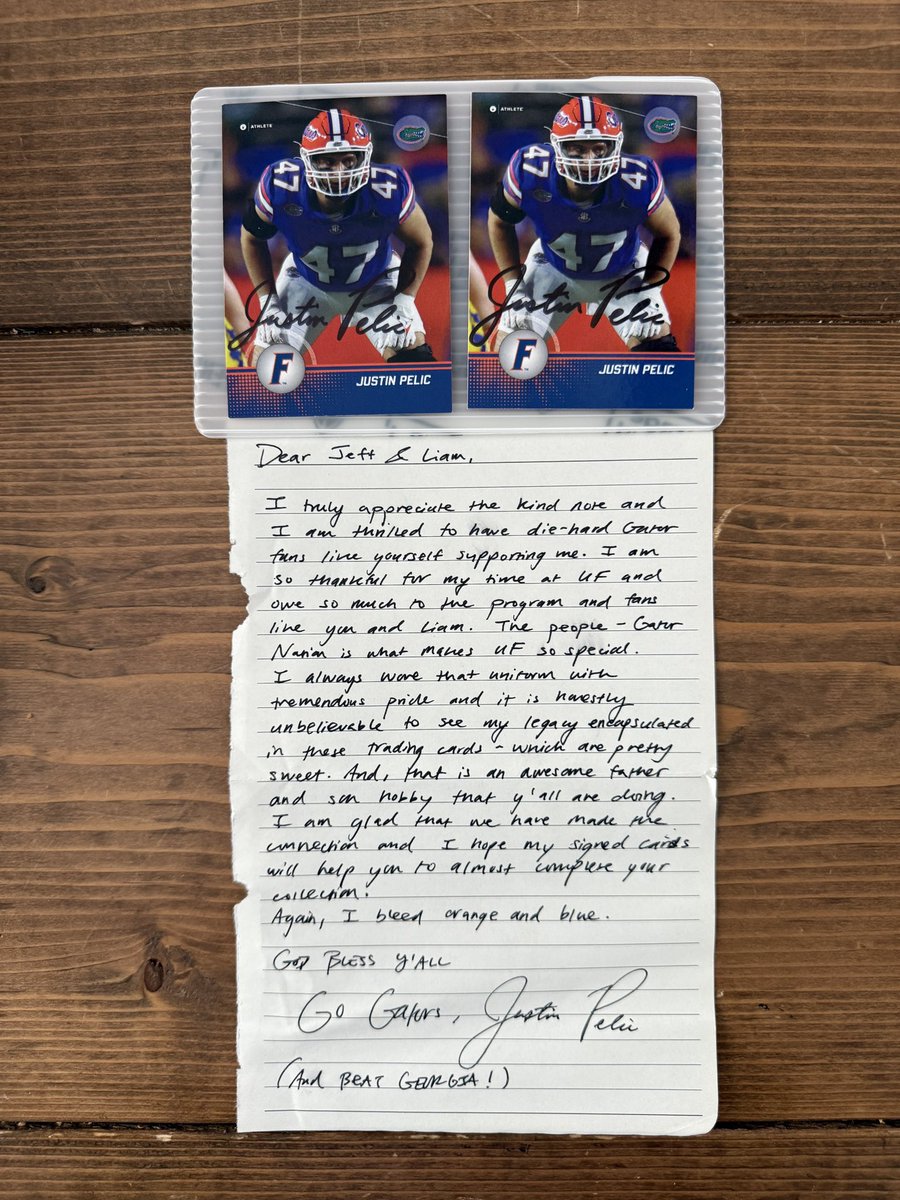 ATHLETE
47
47
47
Justin Pelic
F
JUSTIN PELIC
ATHLETE
47
47
47
Justin Pelic
F
JUSTIN PELIC
Dear Jeff & Liam,
I truly appreciate the kind note and
I am thrilled to have die-hard Gator
fans like yourself supporting me. I am
so thankful for my time at UF and
owe so much to the program and fans
like you and Liam. The people - Gator
Nation is what makes UF so special.
I always wore that uniform with
tremendous pride and it is honestly
unbelievable to see my legacy encapsulated
in these trading cards - which are pretty
sweet. And, that is an awesome father
and son hobby that y'all are doing.
I am glad that we have made the
connection and I hope my signed cards
will help you to almost complete your
collection.
Again, I bleed orange and blue.
GOD BLESS Y'ALL
Go Gators, Justin Pelic
(And BEAT GEORGIA!)